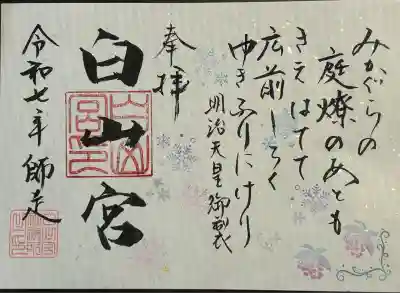 みかぐらの
庭燎のあとも
きえはてて
広前しろく
ゆきふりにけり
明治天皇御製
奉拝
白山宮
令和七年 師走